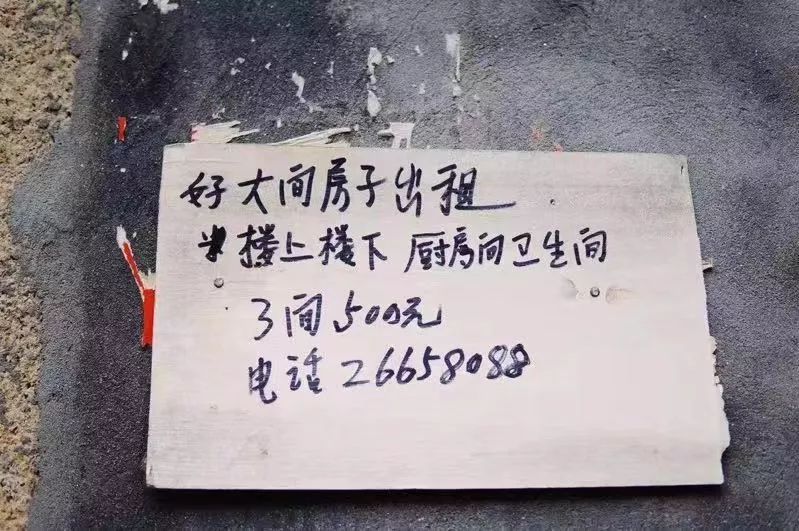 好大间房子出租
楼上楼下 厨房间卫生间
3间500元
电话26658088